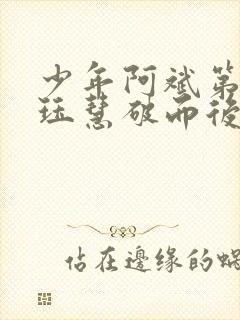 少年阿斌第
珏慧破而後
佔在邊缘的蝸